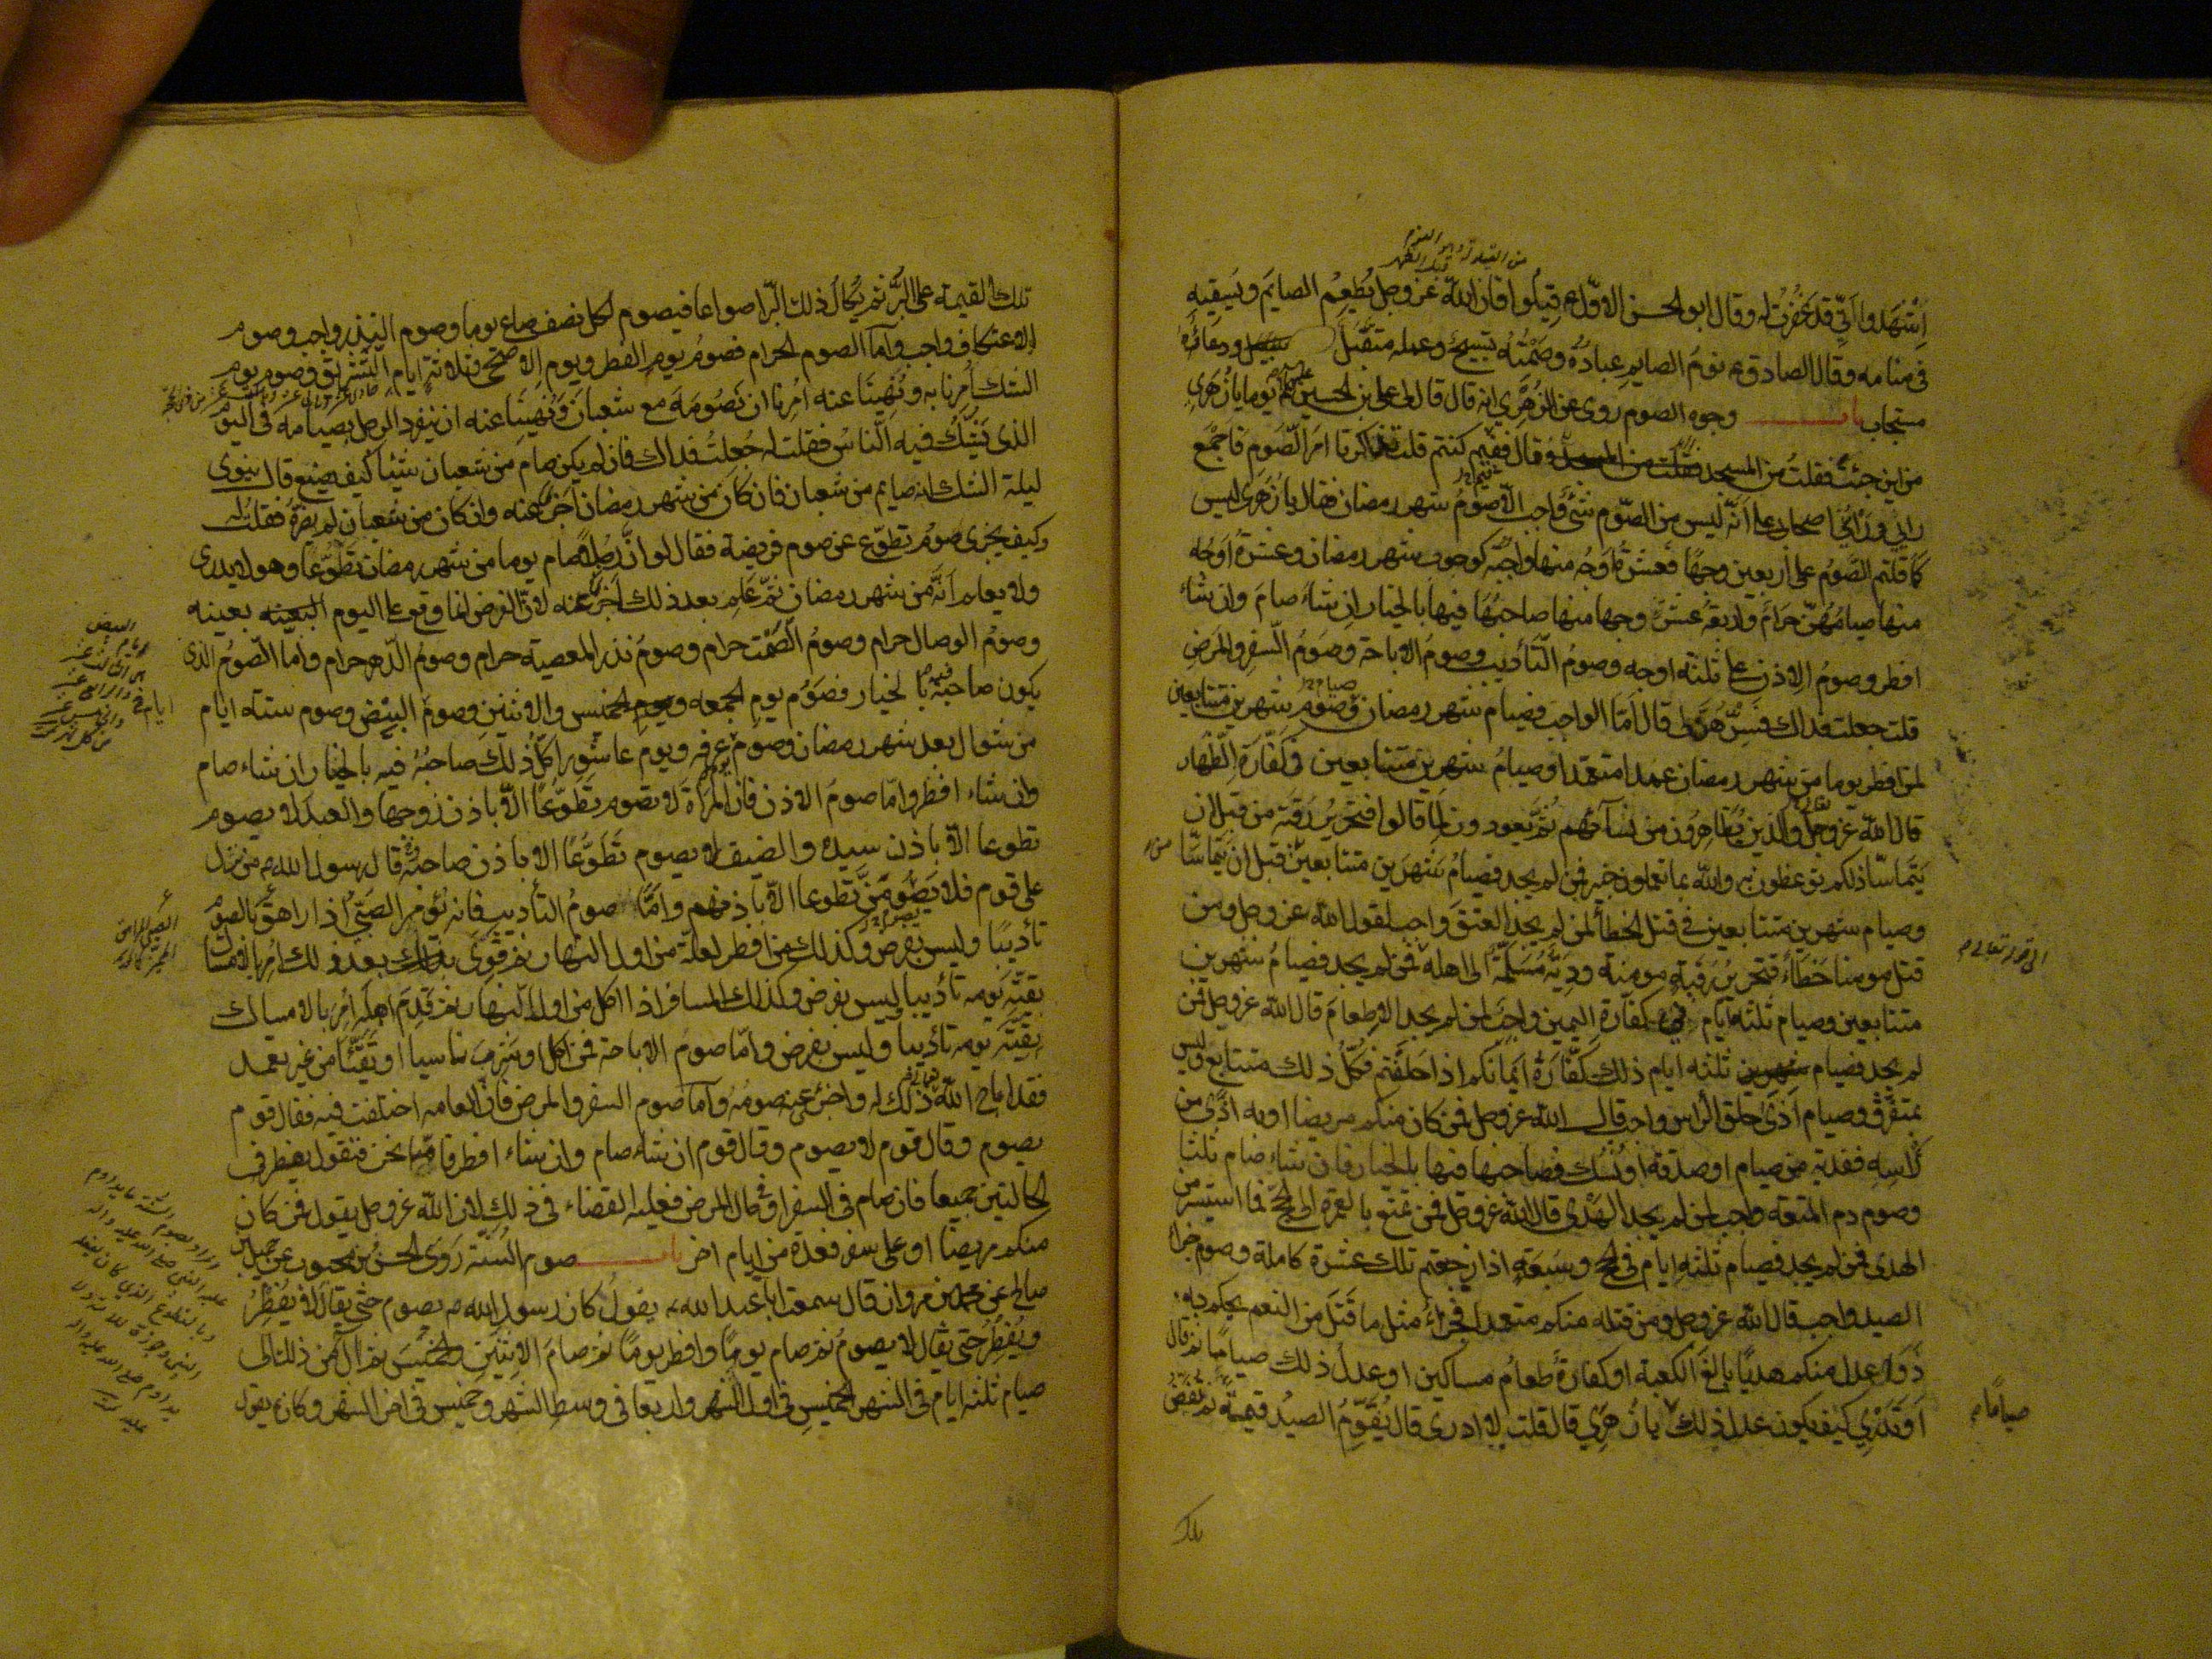 من القيلولة وهو النوم
قبل الظهر
اِشْهَدوا اَنّي قد غَفَرْتُ له وقال ابو الحسن الاول ع قِيلُوا فان الله عز وجل يُطعِمُ الصايم ويَسقيه
فى منامه وقال الصادق ع نومُ الصايم عبادة وصَمْتُه تسبيح وعمله متقبّل ودعائه
مستجاب باب وجوه الصوم روى عن الزهرى انه قال قال لى على بن الحسين ع يوما يا زهرى
من اين جئت فقلتُ من المسجد وقال ففيم كنتم قلت تذاكرنا امر الصوم فاجمع
رأيي ورأى اصحابى على انه ليس من الصوم شئ واجب الا صوم شهر رمضان فقال يا زهرى ليس
كما قلتم الصوم على اربعين وجها فعشرة اوجه منها واجبة كوجوب شهر رمضان وعشرة اوجه
منها صيامهن حرام واربعة عشر وجها منها صاحبها فيها بالخيار ان شاء صام وان شاء
افطر وصوم الاذن على ثلثة اوجه وصوم التأديب وصوم الاباحة وصوم السفر والمرض
قلت جعلت فداك فسّرهن لى قال اما الواجب فصيام شهر رمضان وصوم شهرين متتابعين
لمن افطر يوما من شهر رمضان عمدا متعمدا وصيام شهرين متتابعين فى كفارة الظهار
قال الله عز وجل والذين يظاهرون من نسائهم ثم يعودون لما قالوا فتحرير رقبة من قبل ان
يتماسّا ذلكم توعظون به والله بما تعملون خبير فمن لم يجد فصيام شهرين متتابعين من قبل ان يتماسّا
وصيام شهرين متتابعين فى قتل الخطأ لمن لم يجد العتق واجب لقول الله عز وجل ومن
قتل مومنا خطأ فتحرير رقبة مومنة ودية مسلّمة الى اهله فمن لم يجد فصيام شهرين
متتابعين وصيام ثلثة ايام فى كفارة اليمين واجب لمن لم يجد الاطعام قال الله عز وجل فمن
لم يجد فصيام ثلثة ايام ذلك كفارة ايمانكم اذا حلفتم فكل ذلك متتابع وليس
بمتفرق وصيام اذى حلق الراس واجب قال الله عز وجل فمن كان منكم مريضا او به اذى من
راسه ففدية من صيام او صدقة او نسك فصاحبها فيها بالخيار فان شاء صام ثلثا
وصوم دم المتعة واجب لمن لم يجد الهدى قال الله عز وجل فمن تمتع بالعمرة الى الحج فما استيسر من
الهدى فمن لم يجد فصيام ثلثة ايام فى الحج وسبعة اذا رجعتم تلك عشرة كاملة وصوم جزا
الصيد واجب قال الله عز وجل ومن قتله منكم متعمدا فجزاء مثل ما قتل من النعم يحكم به
ذوا عدل منكم هديا بالغ الكعبة او كفارة طعام مساكين او عدل ذلك صياما ثم قال
اوتدرى كيف يكون عدل ذلك يا زهرى قال قلت لا ادرى قال يقوّم الصيد قيمة ثم تفض
صياما م
تلك
تلك القيمة على البر ثم يكال ذلك البر اصواعا فيصوم لكل نصف صاع يوما وصوم النذر واجب وصوم
الاعتكاف واجب واما الصوم الحرام فصوم يوم الفطر ويوم الاضحى وثلاثة ايام التشريق وصوم يوم
الشك اُمرنا به ونُهينا عنه امرنا ان نصومه مع شعبان ونهينا عنه ان ينفرد الرجل بصيامه فى اليوم
الذى يشك فيه الناس فقلت له جعلت فداك فان لم يكن صام من شعبان شيئا كيف يصنع قال ينوى
ليلة الشك انه صايم من شعبان فان كان من شهر رمضان اجزا عنه وان كان من شعبان لم يضره فقلت له
وكيف يجزى صوم تطوع عن صوم فريضة فقال لو ان رجلا صام يوما من شهر رمضان تطوعا وهو لا يدرى
ولا يعلم انه من شهر رمضان ثم علم بعد ذلك اجزأ عنه لان الفرض انما وقع على اليوم بعينه
وصوم الوصال حرام وصوم الصمت حرام وصوم نذر المعصية حرام وصوم الدهر حرام واما الصوم الذى
يكون صاحبه فيه بالخيار فصوم يوم الجمعه والخميس والاثنين وصوم البيض وصوم ستة ايام
من شوال بعد شهر رمضان وصوم يوم عرفه ويوم عاشورا كل ذلك صاحبه فيه بالخيار ان شاء صام
وان شاء افطر واما صوم الاذن فان المرأة لا تصوم تطوعا الا باذن زوجها والعبد لا يصوم
تطوعا الا باذن سيده والضيف لا يصوم تطوعا الا باذن صاحبه قال رسول الله ص من نزل
على قوم فلا يصومن تطوعا الا باذنهم واما صوم التأديب فانه يؤمر الصبى اذا راهق بالصوم
تأديبا وليس بفرض وكذلك من افطر لعلة من اول النهار ثم قوى بعد ذلك امر بالامساك
بقية يومه تأديبا وليس بفرض وكذلك المسافر اذا اكل من اول النهار ثم قدم اهله امر بالامساك
بقية يومه تأديبا وليس بفرض واما صوم الاباحة فمن اكل او شرب ناسيا او تقيّأ من غير تعمد
فقد اباح الله ذلك له واجزى عنه صومه واما صوم السفر والمرض فان العامه اختلفت فيه فقال قوم
يصوم وقال قوم لا يصوم وقال قوم ان شاء صام وان شاء افطر فاما نحن فنقول يفطر فى
الحالتين جميعا فان صام فى السفر او فى حال المرض فعليه القضاء فى ذلك لان الله عز وجل يقول فمن كان
منكم مريضا او على سفر فعدة من ايام اخر باب صوم السنة روى الحسن بن محبوب عن جميل بن
صالح عن محمد بن مروان قال سمعت ابا عبد الله ع يقول كان رسول الله ص يصوم حتى يقال لا يفطر
ويفطر حتى يقال لا يصوم ثم صام يوما وافطر يوما ثم صام الاثنين والخميس ثم ال من ذلك الى
صيام ثلثة ايام فى الشهر الخميس فى اول الشهر واربعا فى وسط الشهر وخميس فى اخر الشهر وكان ع يقول